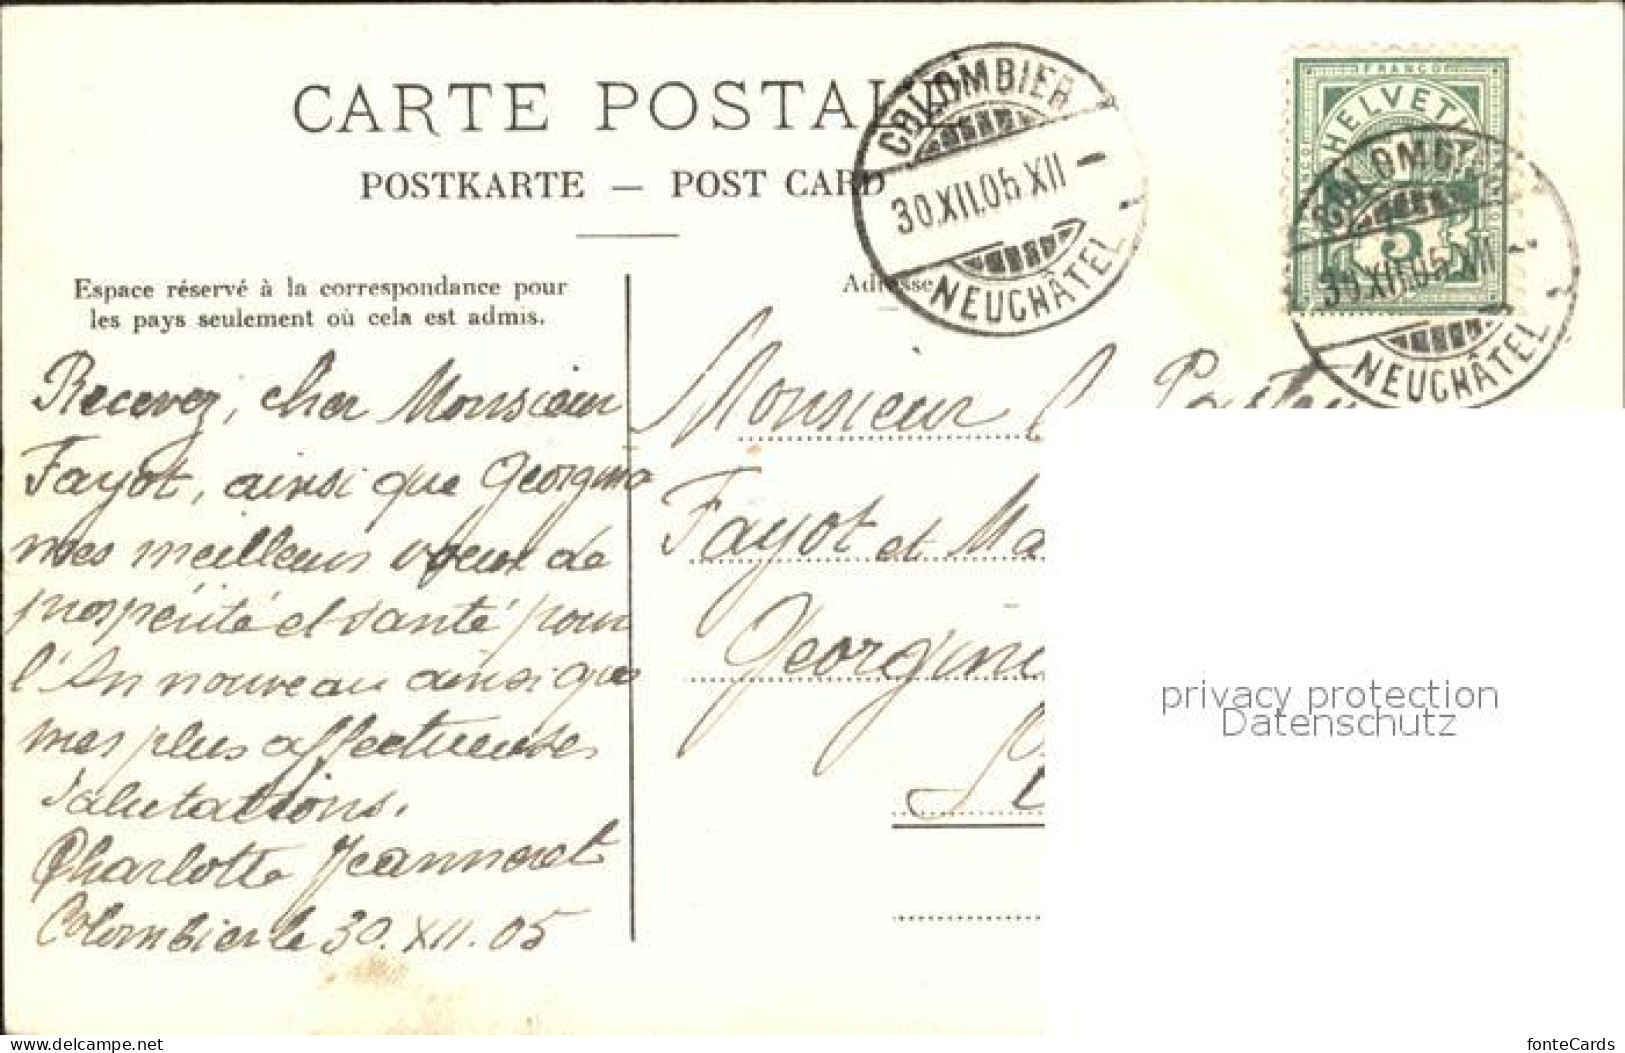 CARTE POSTALE
POSTKARTE — POST CARD
COLOMBIER
30.XII.05 XII –
NEUCHÂTEL
FRANCO
HELVETIA
5
COLOMBIER
30.XII.05 XII
NEUCHÂTEL
Espace réservé à la correspondance pour
les pays seulement où cela est admis.
Adresse
Recevez, cher Monsieur
Fayot, ainsi que Georgina
mes meilleurs voeux de
prospérité et santé pour
l'An nouveau ainsi que
mes plus affectueuses
salutations.
Charlotte Jeanneret
Colombier le 30. XII. 05
Monsieur Pasteur
Fayot et Ma
Georgin
privacy protection
Datenschutz
www.delcampe.net
fonteCards